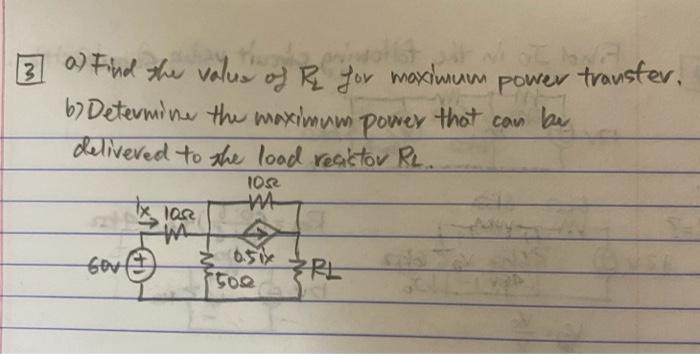 3 a) Find the value of RL for maximum power transfer.
b) Determine the maximum power that can be
delivered to the load resistor RL.
10Ω
ix 10Ω
60V + 0.5ix RL
50Ω